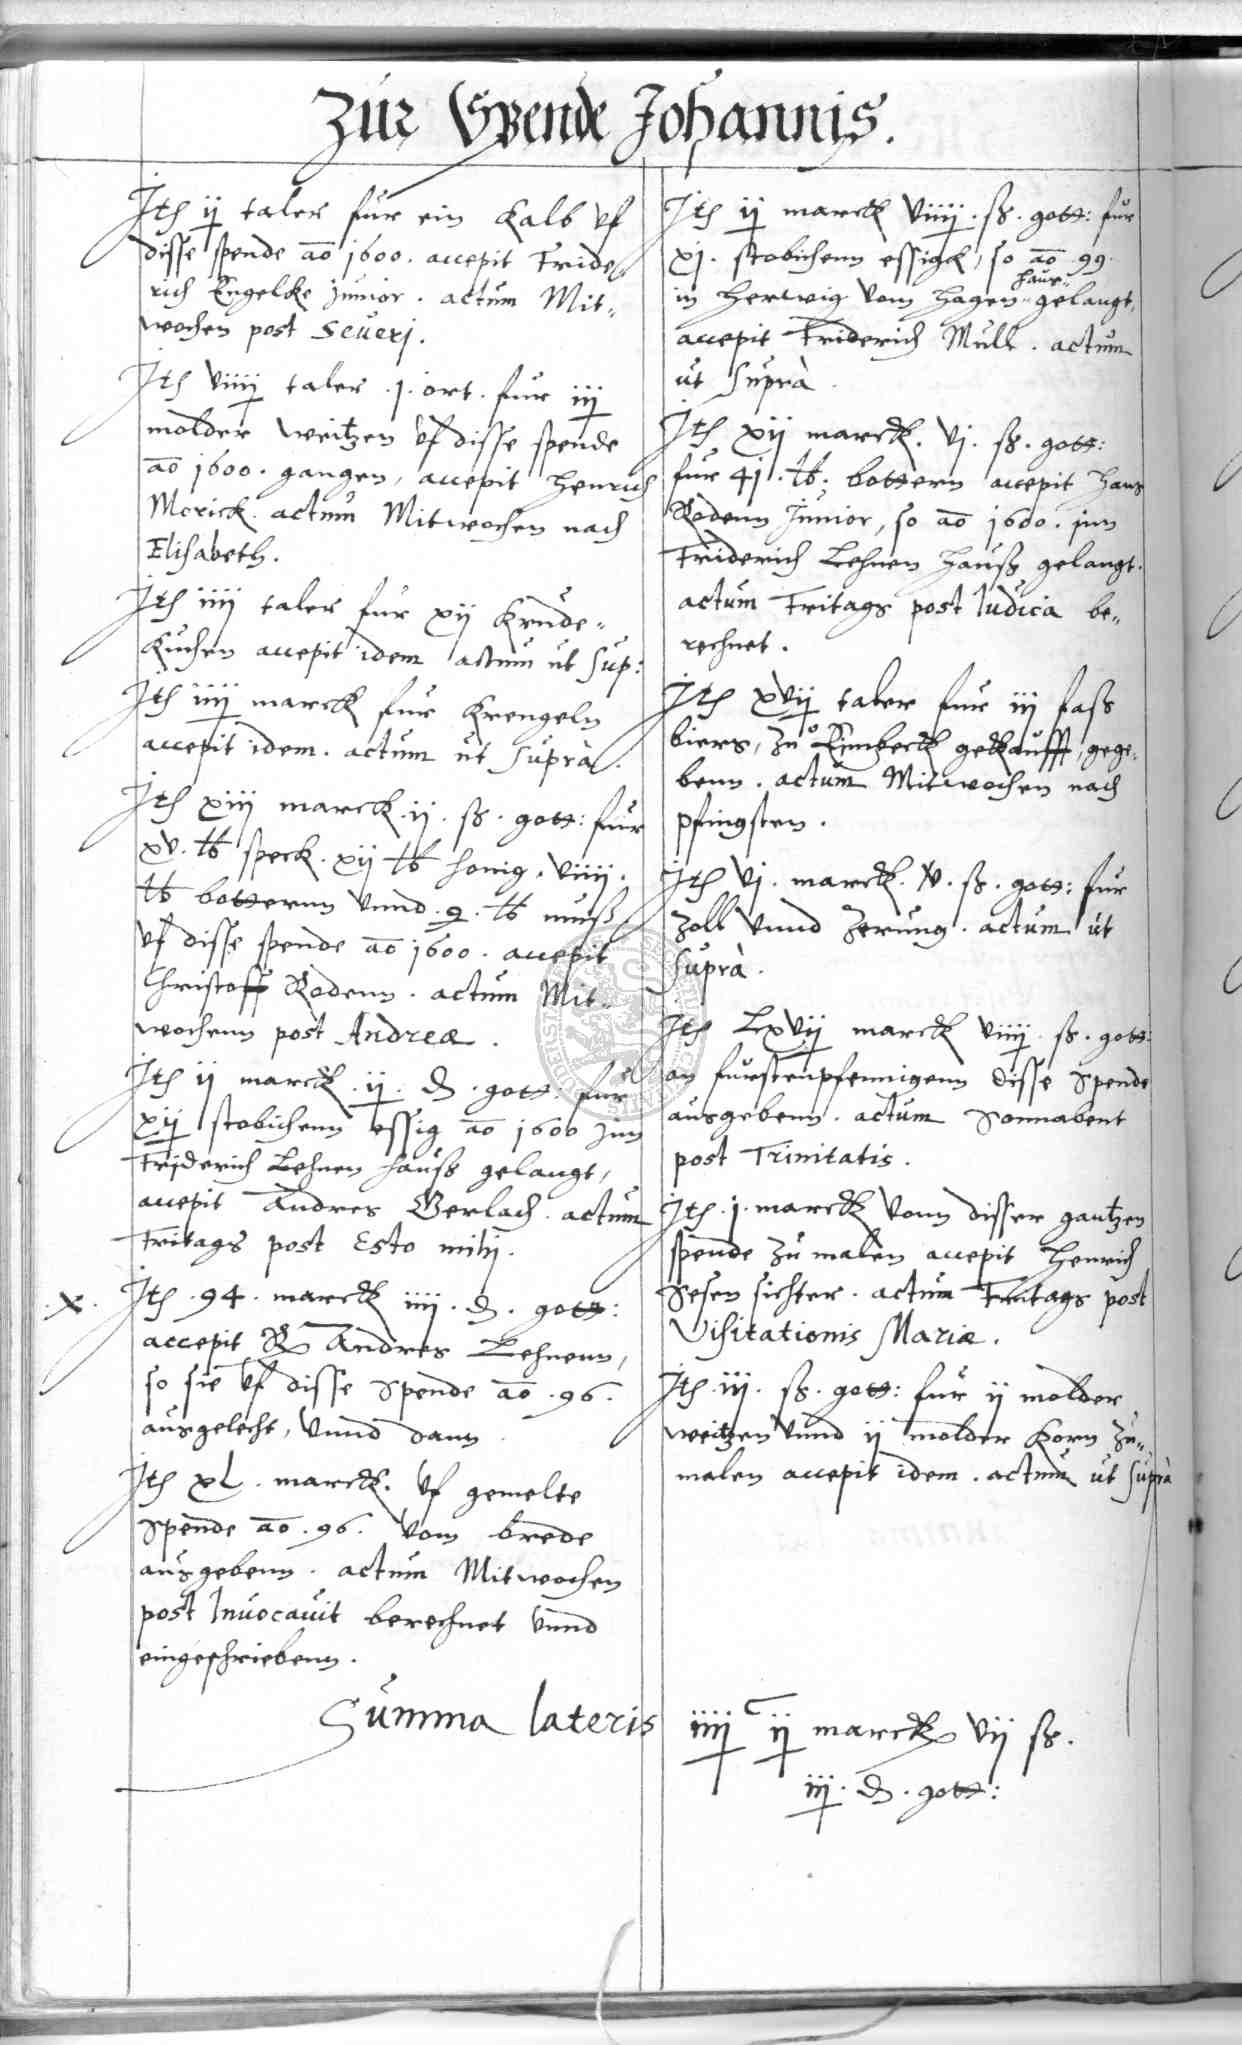 Zur Spende Johannis.
Ith ij taler fur ein Kalb vf
disse spende ao 1600. accepit Fride
rich Engelcke junior. actum Mit„
wochen post Severj.
Ith viiij taler .j. ort. fur iij
molder weitzen vf disse spende
ao 1600. gangen, accepit Henrich
Merick. actum Mitwochen nach
Elisabeth.
Ith iiij taler fur xij Krude„
Kuchen accepit idem actum ut sup:
Ith iiij marck fur Krengeln
accepit idem. actum ut suprà.
Ith xiij marck .ij. ß. gott: fur
xv. lb speck. xij lb honig, viiij.
lb botternn vnnd .9. lb
vf disse spende ao 1600. accepit
Christoff Rodenn. actum Mit„
wochenn post Andreæ.
Ith ij marck .ij. d. gott: fur
xij stobichenn essig ao 1600 jnn
Friderich Lehnen hauß gelangt,
accepit Andres Gerlach. actum
Fritags post Esto mihj.
.x. Ith .94. marck iiij. d. gott:
accepit Andres Lehnenn,
so sie vf disse Spende ao .96.
ausgelecht, vnnd dann
Ith xL. marck. vf gemelte
Spende ao .96. vom brede
ausgebenn. actum Mitwochen
post Invocavit berechnet vnnd
eingeschriebenn.
Ith ij marck viiij. ß. gott: fur
xj. stobichenn essigk, so ao .99.
haus„
in Herwig vom Hagen„ gelangt,
accepit Friderich Mull. actum
ut suprà.
Ith xij marck. vj. ß. gott:
fur 41. lb. bottern accepit Hans
Rodenn Junior, so ao 1600. jnn
Friderich Lehnen hauß gelangt.
actum Fritags post Iudica be„
rechnet.
Ith xvij taler fur iij faß
biers, zu Eimbeck gekaufft, gege„
benn. actum Mitwochen nach
pfingsten.
Ith vj. marck. v. ß. gott: fur
Zoll vnnd Zerung. actum ut
suprà.
Ith Lxvij marck viiij. ß. gott:
an furstenpfennigenn disse Spende
ausgebenn. actum Sonnabent
post Trinitatis.
Ith .j. marck vonn disser gantzen
spende zu malen accepit Henrich
Sesen sichter. actum Fritags post
Visitationis Mariæ.
Ith .iij. ß. gott: fur ij molder
weitzen vnnd ij molder Korn zu„
malen accepit idem. actum ut suprà
Summa lateris iiij C ij marck vij ß.
iij. d. gott: